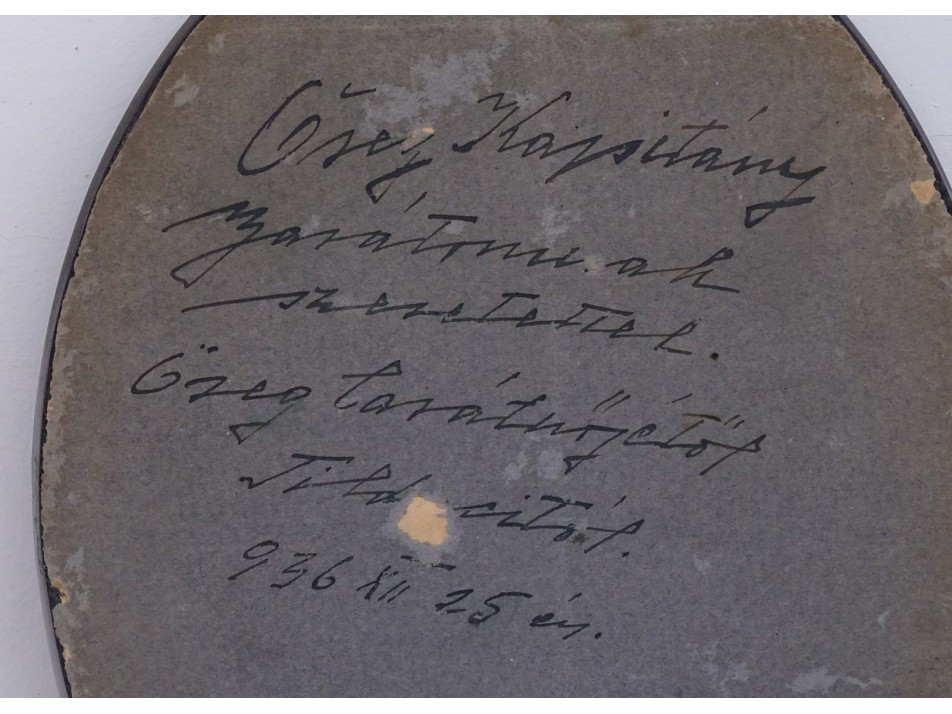 Öreg Kapitány
barátomnak
szeretettel.
Öreg barátnőjétől
936 XII 25 én.